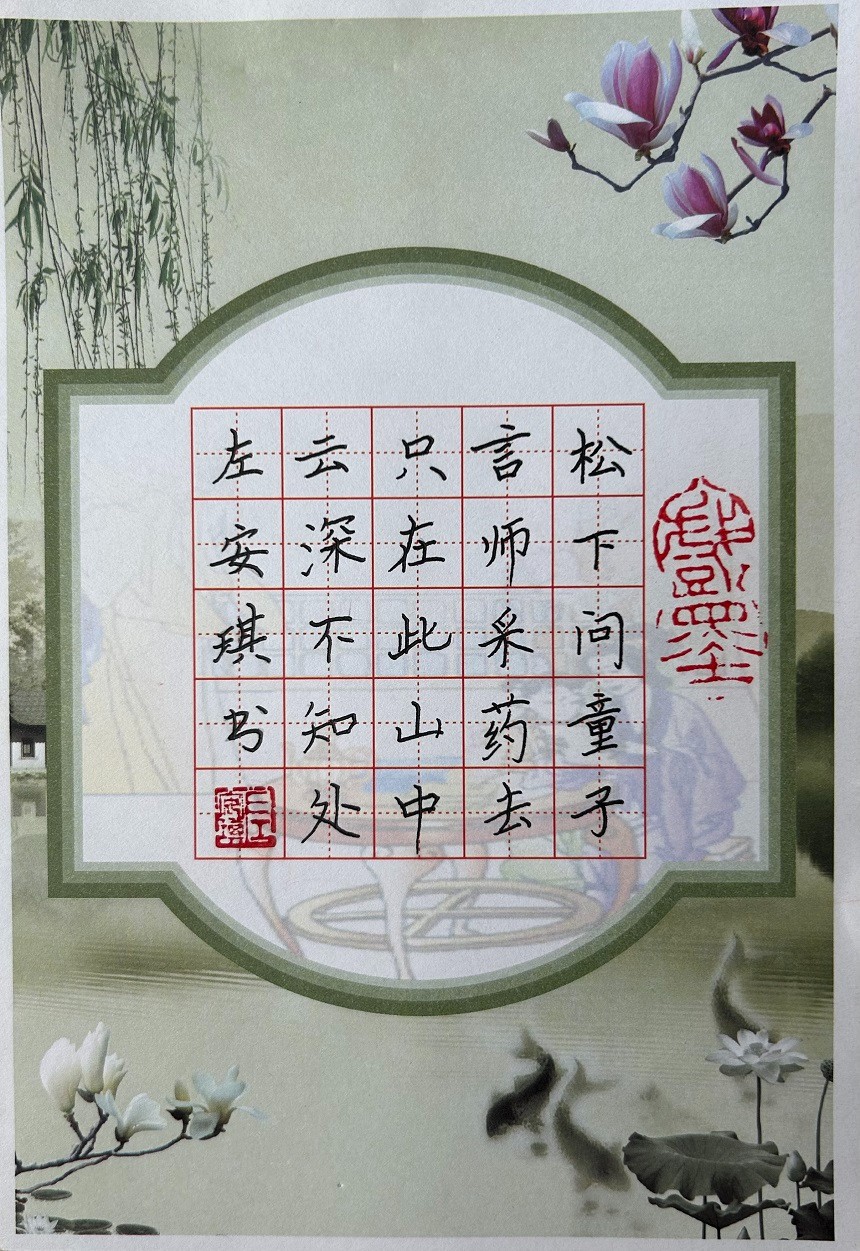 松下问童子
言师采药去
只在此山中
云深不知处
左安琪书